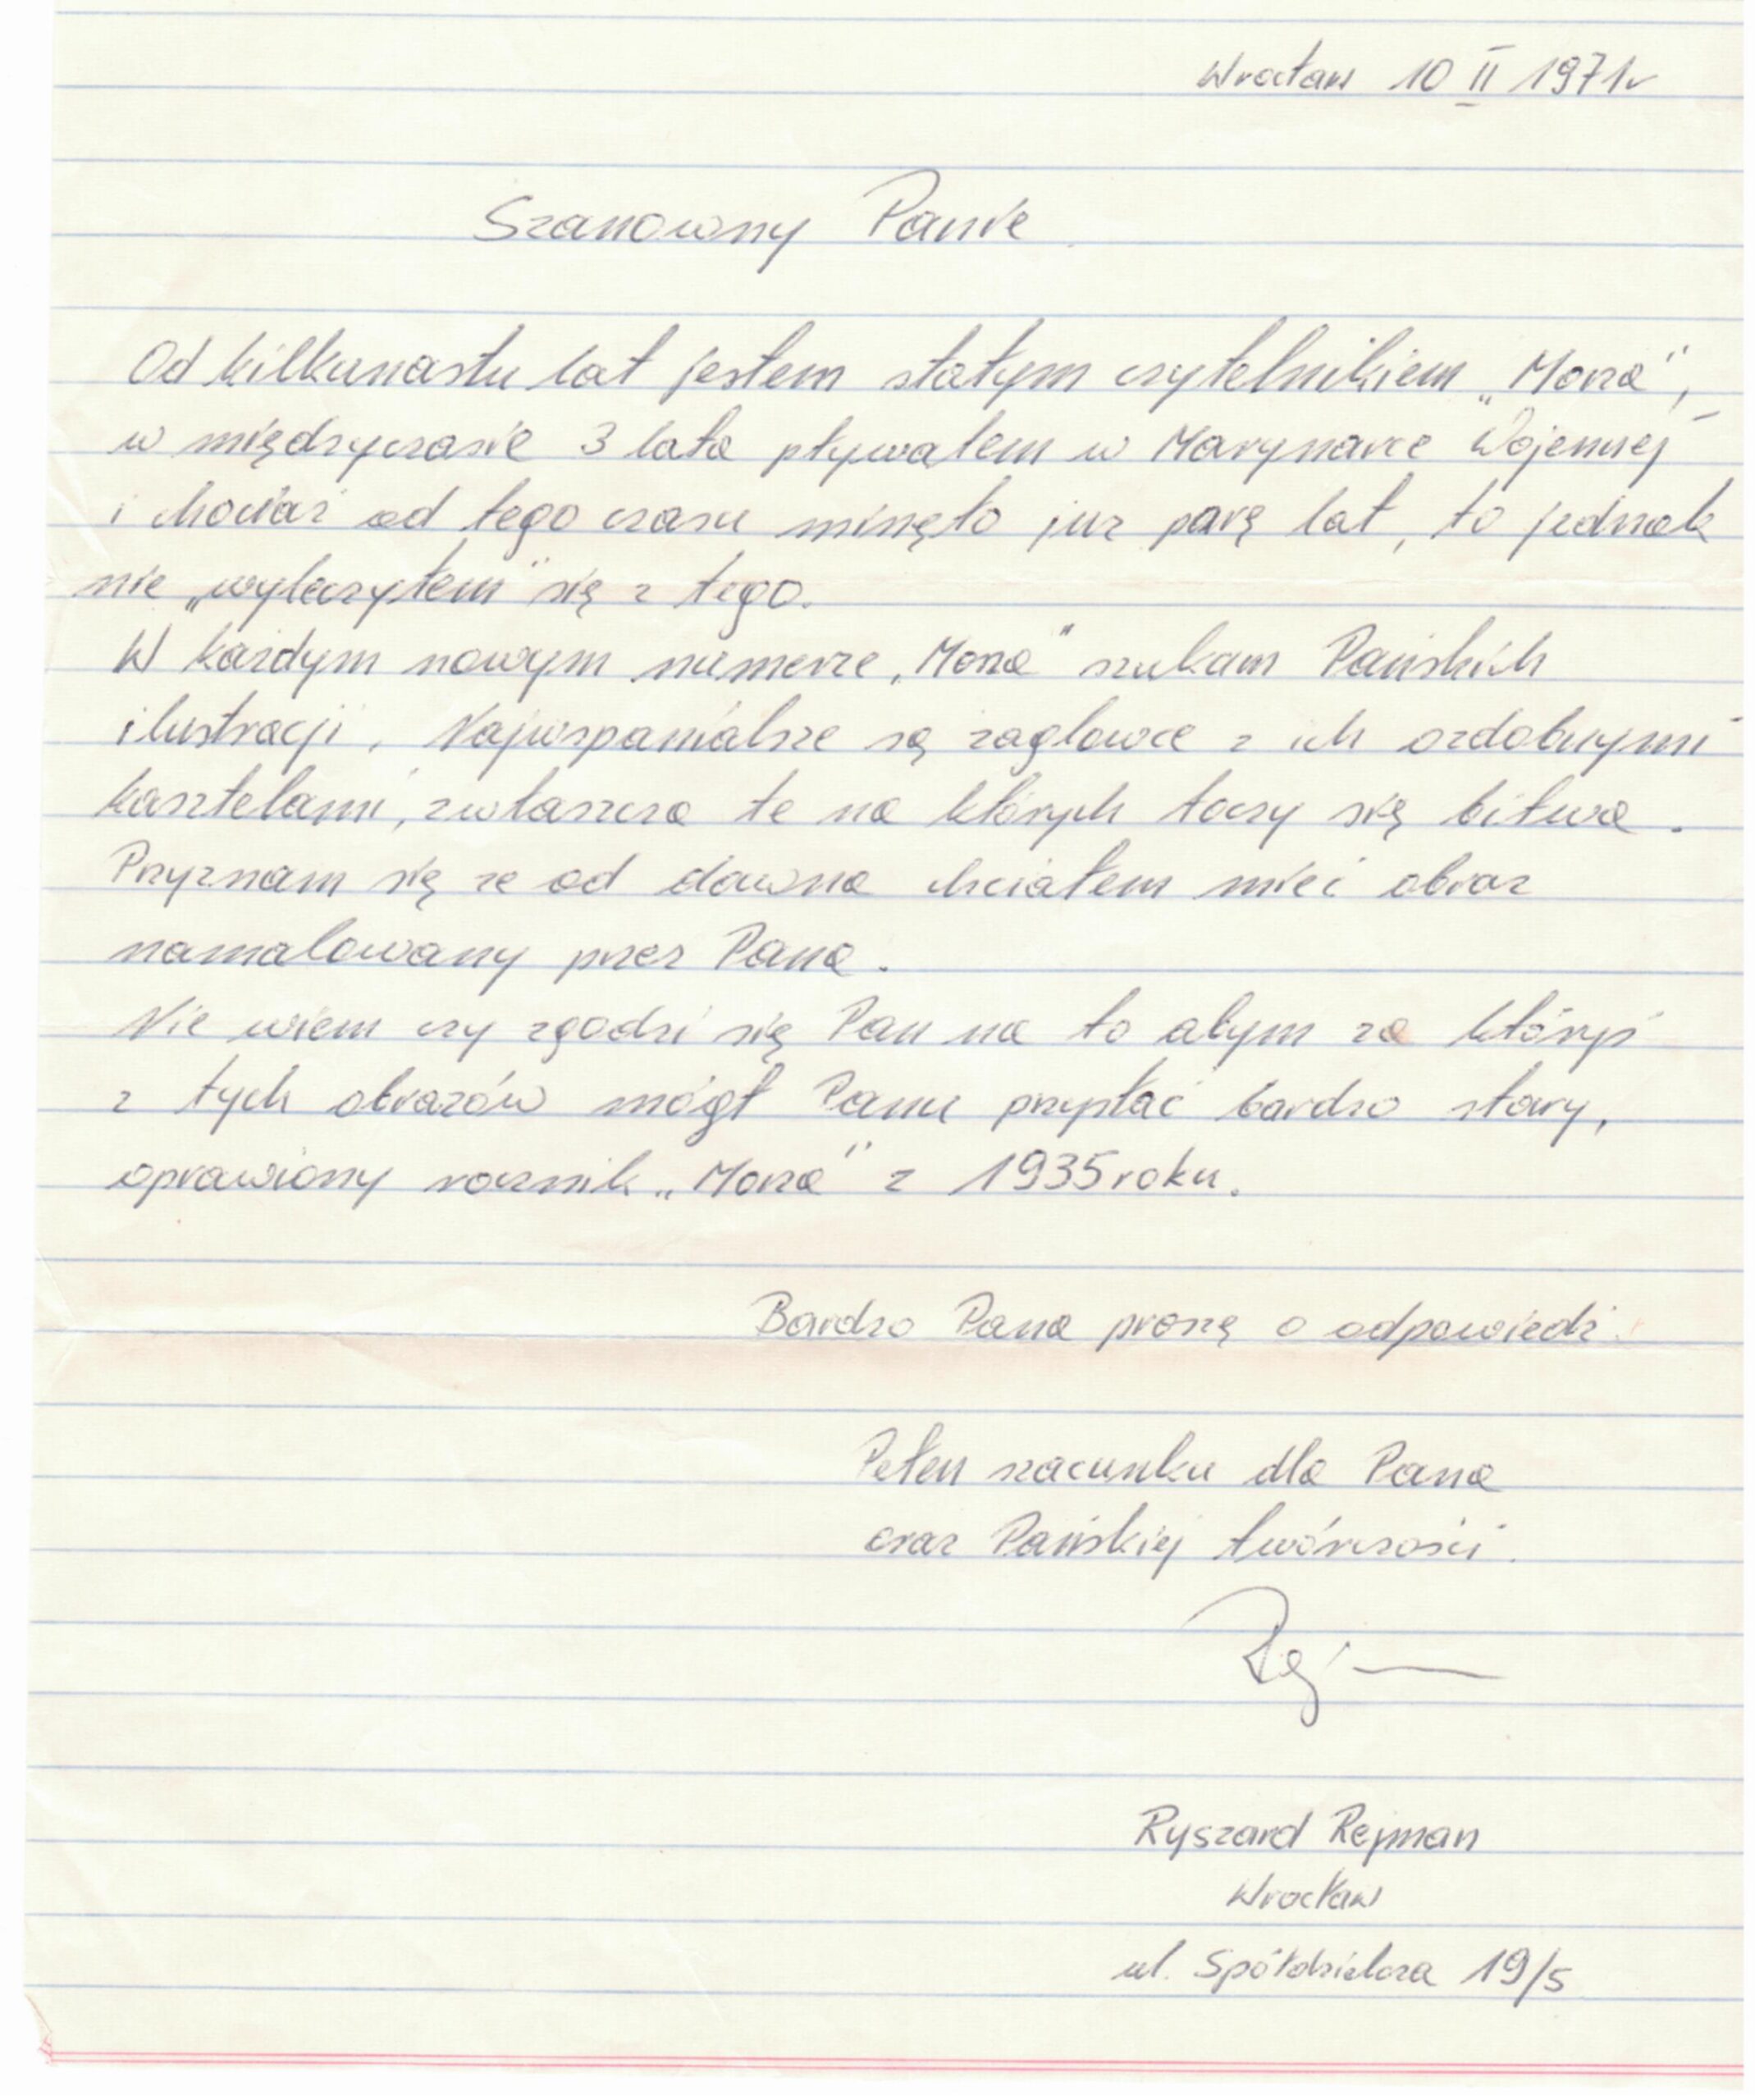 Wrocław 10 II 1971r
Szanowny Panie
Od kilkunastu lat jestem stałym czytelnikiem „Morza",
w międzyczasie 3 lata pływałem w Marynarce Wojennej
i chociaż od tego czasu minęło już parę lat, to jednak
nie „wyleczyłem" się z tego.
W każdym nowym numerze „Morza" szukam Pańskich
ilustracji. Najwspanialsze są żaglowce z ich ozdobnymi
kasztelami, zwłaszcza te na których toczy się bitwa.
Przyznam się że od dawna chciałem mieć obraz
namalowany przez Pana.
Nie wiem czy zgodzi się Pan na to abym za któryś
z tych obrazów mógł Panu przysłać bardzo stary,
oprawiony rocznik „Morza" z 1935 roku.
Bardzo Pana proszę o odpowiedź.
Pełen szacunku dla Pana
oraz Pańskiej twórczości.
Ryszard Rejman
Wrocław
ul. Spółdzielcza 19/5